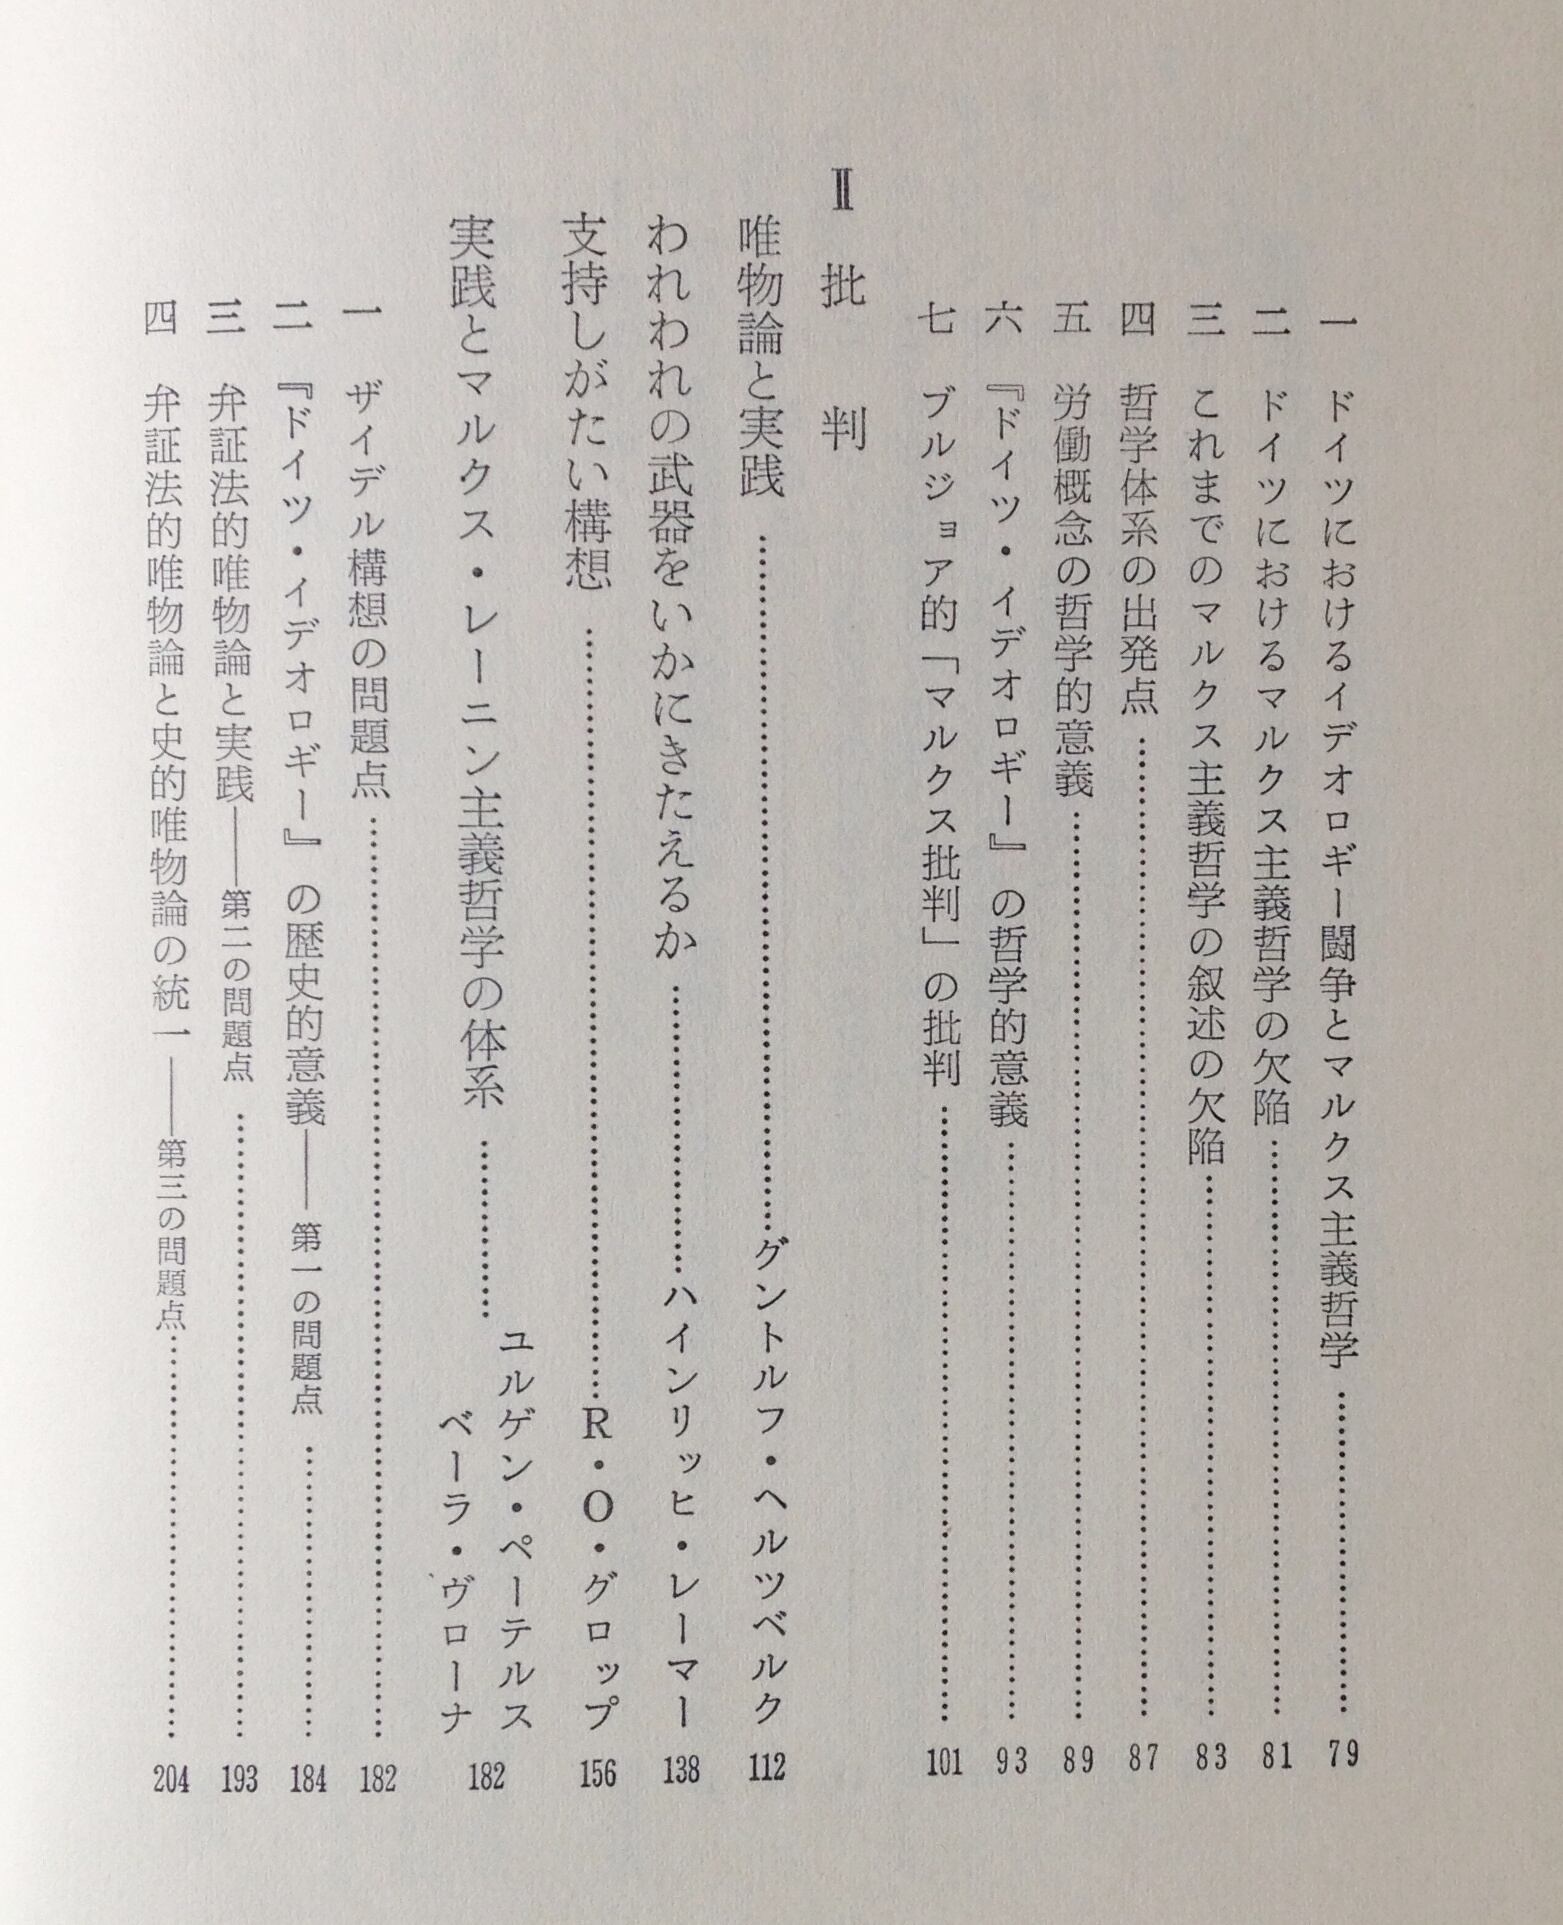 一　ドイツにおけるイデオロギー闘争とマルクス主義哲学……79
二　ドイツにおけるマルクス主義哲学の欠陥……81
三　これまでのマルクス主義哲学の叙述の欠陥……83
四　哲学体系の出発点……87
五　労働概念の哲学的意義……89
六　『ドイツ・イデオロギー』の哲学的意義……93
七　ブルジョア的「マルクス批判」の批判……101
Ⅱ　批　判
唯物論と実践……グントルフ・ヘルツベルク　112
われわれの武器をいかにきたえるか……ハインリッヒ・レーマー　138
支持しがたい構想……R・O・グロップ　156
実践とマルクス・レーニン主義哲学の体系……ユルゲン・ペーテルス　ベーラ・ヴローナ　182
一　ザイデル構想の問題点……182
二　『ドイツ・イデオロギー』の歴史的意義――第一の問題点……184
三　弁証法的唯物論と実践――第二の問題点……193
四　弁証法的唯物論と史的唯物論の統一――第三の問題点……204